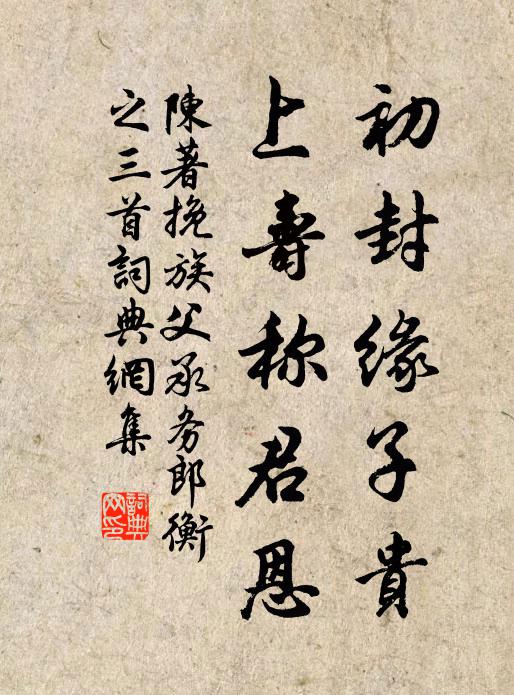 初封缘子貴
上壽称君恩
陳著挽族父承务郎衡
之三首詞典網集
詞典
网印